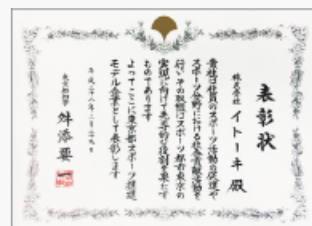 表彰状
株式会社 イトーキ 殿
貴社は社員のスポーツ活動の促進や
スポーツ分野における社会貢献活動を
行いその取組はスポーツ都市東京の
実現に向けて先導的役割を果たす
ものであります
よってここに東京都スポーツ推進
モデル企業として表彰します
平成二十八年二月二十九日
東京都知事 舛添要一